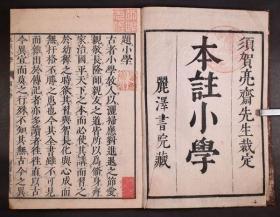 須賀亮齋先生裁定
本註小學
麗澤書院藏
題小學
古者小學教人以灑掃應對進退之節愛
親敬長隆師親友之道皆所以爲脩身齊
家治國平天下之本而必使其講而習之
於幼穉之時欲其習與智長化與心成而
無扞格不勝之患也今其全書雖不可見
而雜出於傳記者亦多讀者往往直以古
今異宜而莫之行殊不知其無古今之異